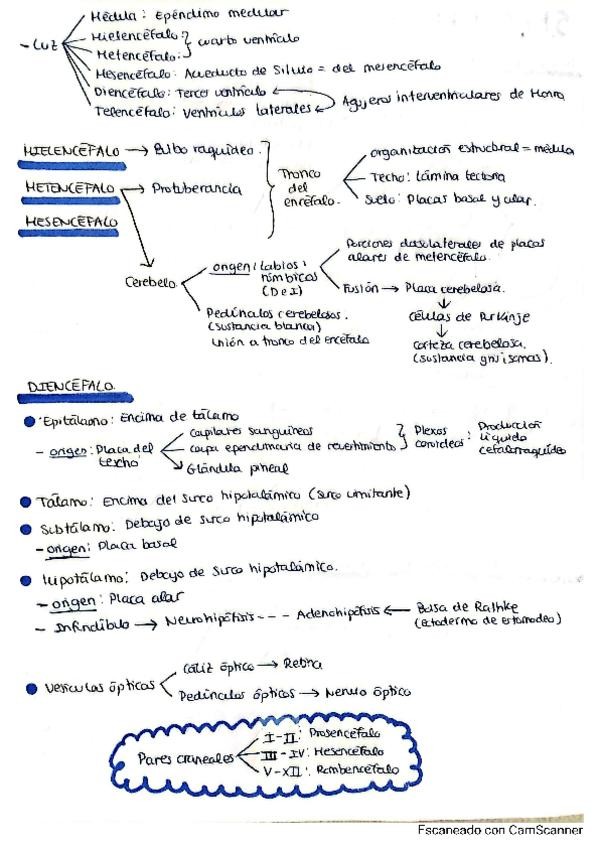 - Luz
Médula: Epéndimo medular
Mielencéfalo: } cuarto ventrículo
Metencéfalo:
Mesencéfalo: Acueducto de Silvio = del mesencéfalo
Diencéfalo: Tercer ventrículo
Telencéfalo: Ventrículos laterales
Agujeros interventriculares de Monro
MIELENCÉFALO → Bulbo raquídeo.
METENCÉFALO → Protuberancia
MESENCÉFALO
Tronco
del
encéfalo.
organización estructural = médula
Techo: lámina tectoria
Suelo: Placas basal y alar.
Cerebelo
origen: labios
rómbicos
(D e I)
Porciones dasolaterales de placas
alares de metencéfalo.
Fusión → Placa cerebelosa.
↓
células de Purkinje
↓
corteza cerebelosa.
(sustancia gris: somas).
Pedúnculos cerebelosos.
(sustancia blanca)
unión a tronco del encéfalo
DIENCÉFALO.
Epitálamo: Encima de tálamo
- origen: Placa del
techo
Capilares sanguíneos
Capa ependimaria de revestimiento
Glándula pineal
Plexos
coroideos
: Producción
líquido
cefalorraquídeo
Tálamo: Encima del surco hipotalámico (surco limitante)
Subtálamo: Debajo de surco hipotalámico
- origen: Placa basal
Hipotálamo: Debajo de surco hipotalámico.
- origen: Placa alar
- Infundíbulo → Neurohipófisis --- Adenohipófisis ← Bolsa de Rathke
(Ectodermo de estomodeo)
Vesículas ópticas
Cáliz óptico → Retina
Pedínculos ópticos → Nervio óptico
Pares craneales
I-II: Prosencéfalo
III-IV: Mesencéfalo
V-XII: Rombencéfalo
Escaneado con CamScanner